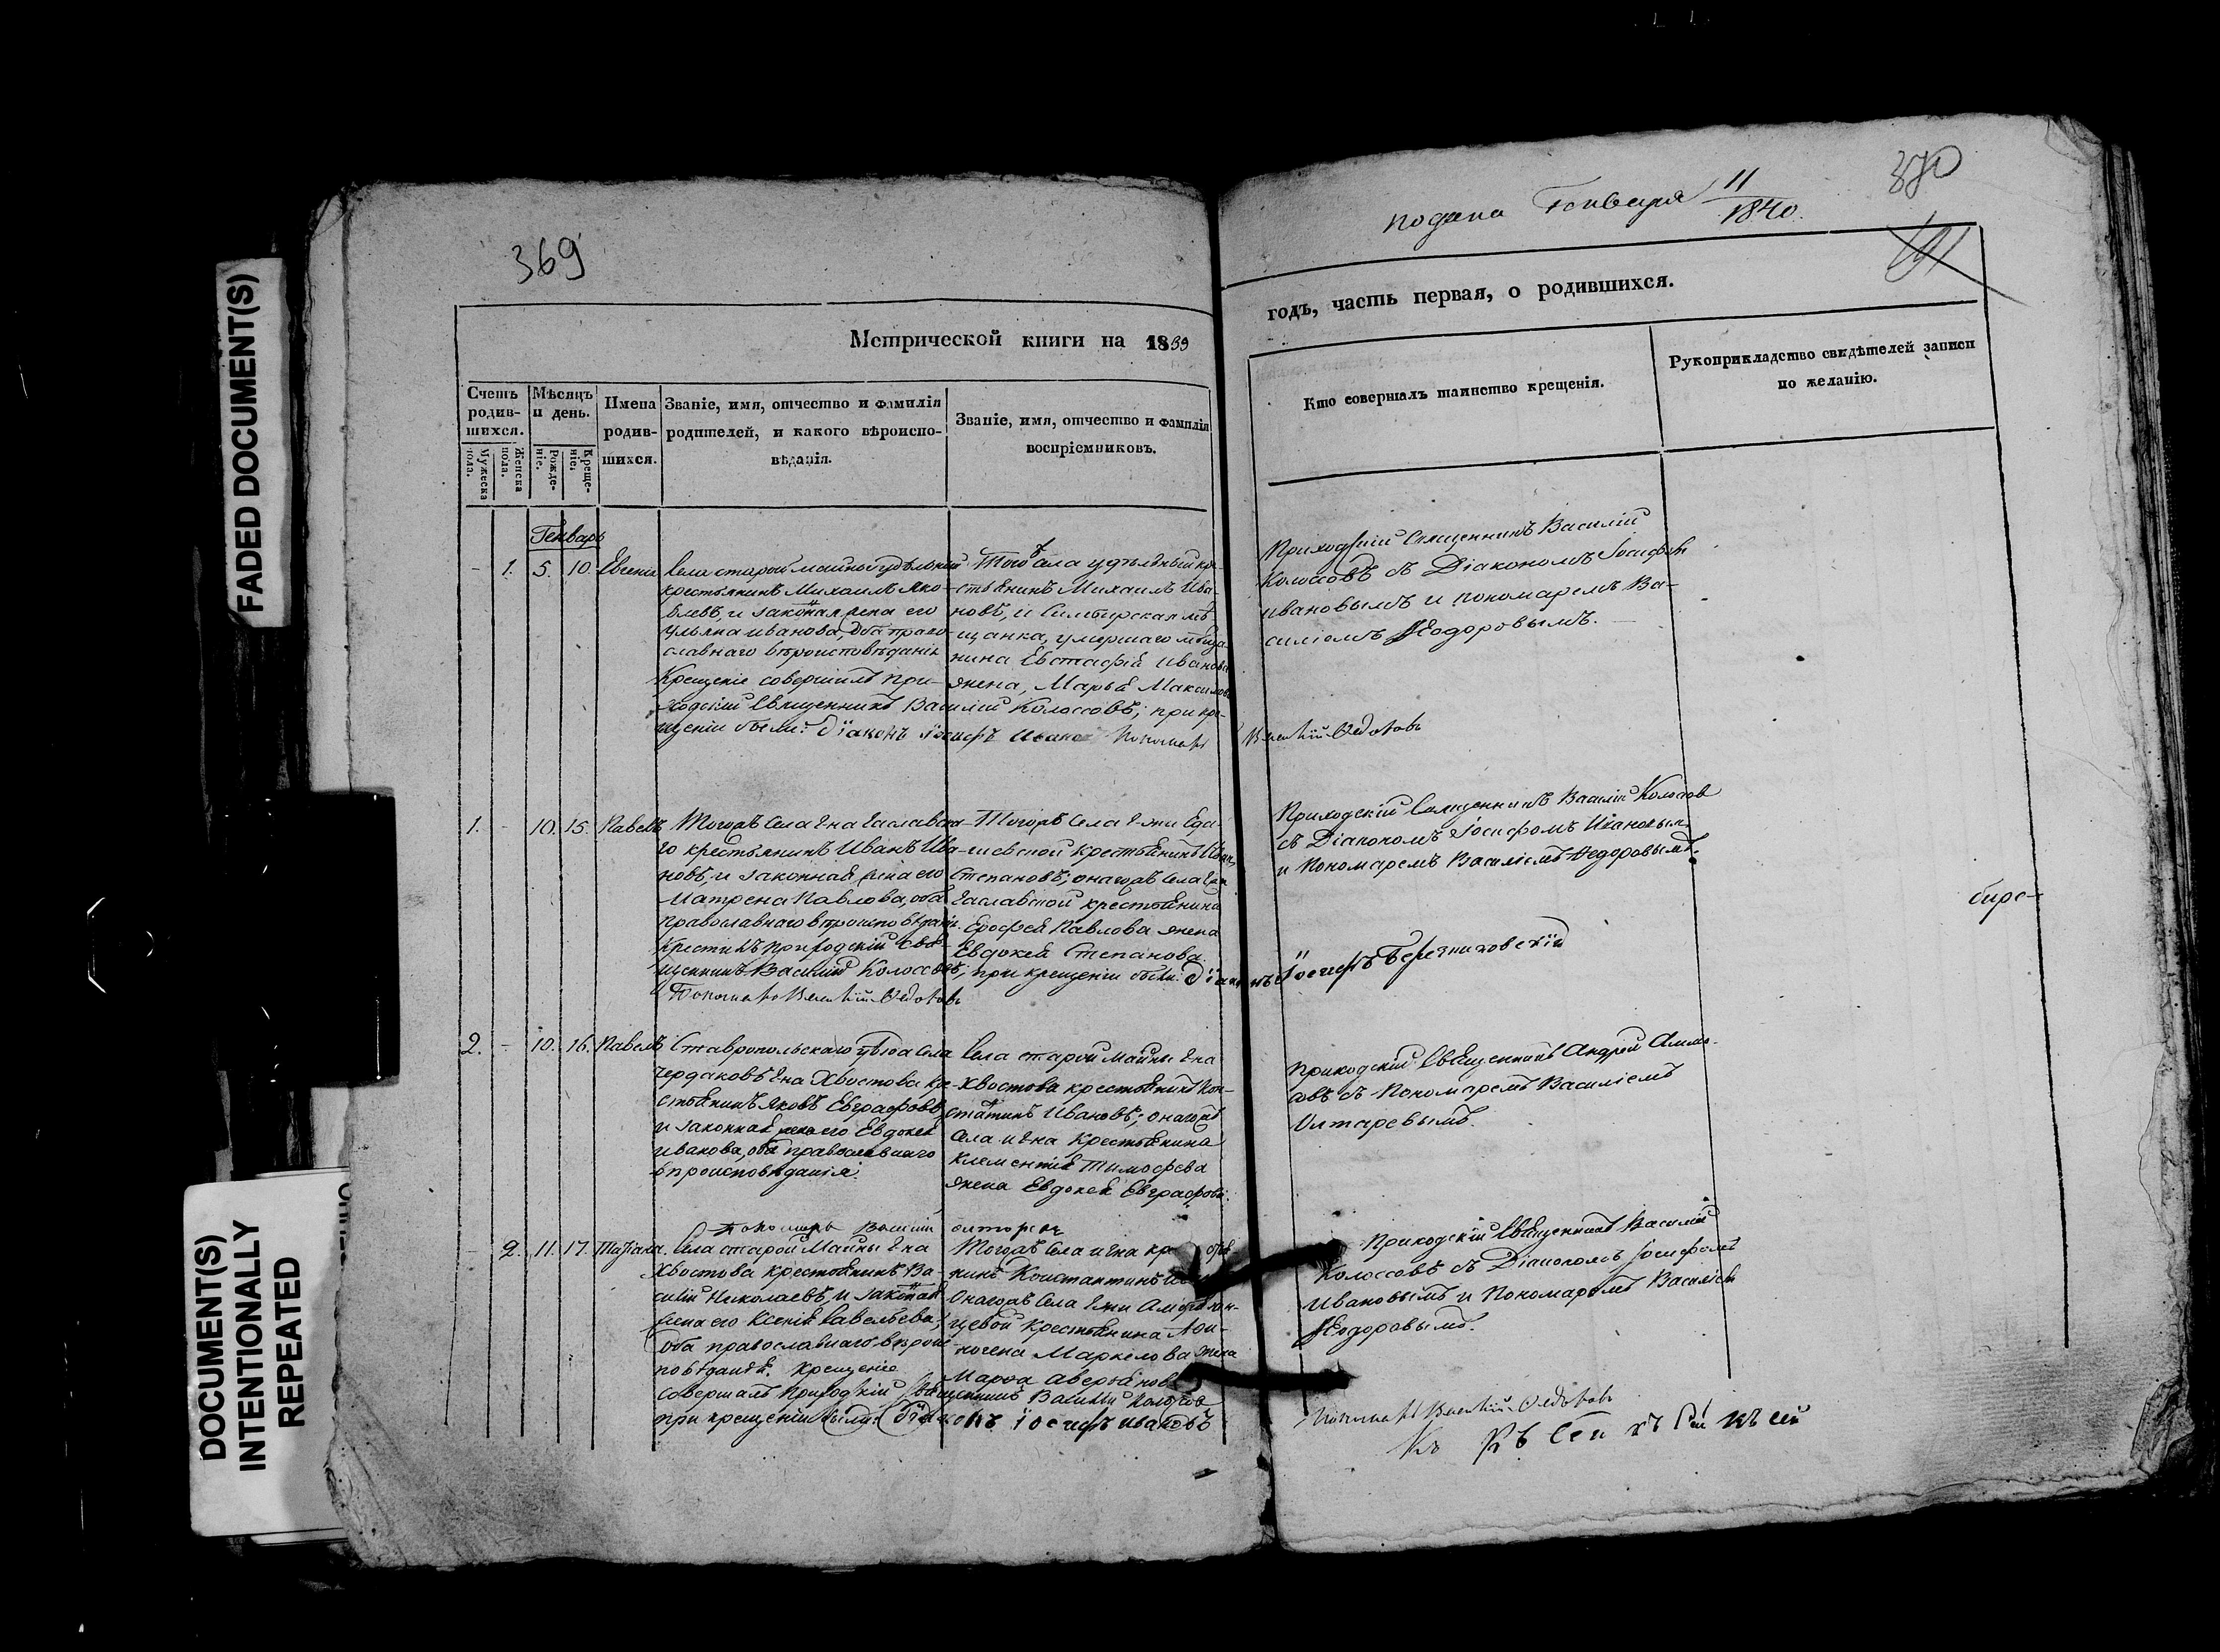 FADED DOCUMENT(S)
DOCUMENT(S)
INTENTIONALLY
REPEATED
369
Метрической книги на 1839
Счетъ родив-шихся.
Мужеска пола.
Женска пола.
Мѣсяцъ и день.
Рожде-ніе.
Креще-ніе.
Имена родив-шихся.
Званіе, имя, отчество и фамилія
родителей, и какого вѣроиспо-
вѣданія.
Званіе, имя, отчество и фамилія
воспріемниковъ.
Генварь
1. 5. 10. Евгенія
Села старой майны удѣльный
крестьянинъ Михаилъ Яко-
влевъ, и законная жена его
Ульяна иванова, оба право-
славнаго вѣроисповѣданія
Крещеніе совершилъ при-
ходскій Священникъ Василій Колосовъ; при кре-
щеніи были: діаконъ іосифъ Ивановъ Пономарь
Того села удѣльный кре-
стьянинъ Михаилъ Ива-
новъ, и Симбирская мѣ-
щанка, умершаго мѣща-
нина Евстафія Иванова
жена, Марья Максимова
1. 10. 15. Павелъ
Тогожъ Села
го крестьянинъ Иванъ Ива-
новъ, и законная жена его
Матрена Павлова, оба
православнаго вѣроисповѣданія.
Крестилъ приходскій Свя-
щенникъ Василій Колосовъ; при крещеніи были: діаконъ Іосифъ Березниковскій
Пономарь Василій Федоровъ
Тогожъ Села
крестьянинъ Иванъ
Степановъ; онагожъ Села
крестьянина
Ерофея Павлова жена
Евдокея Степанова
2. 10. 16. Павелъ
Ставропольскаго уѣзда Села
Чердаковъ г-на Хвостова кре-
стьянинъ Яковъ Евграфовъ,
и законная жена его Евдокея
иванова, оба православнаго
вѣроисповѣданія.
Пономарь Василій олторевъ
Села старой Майны г-на
Хвостова крестьянинъ Кон-
стантинъ Ивановъ; онагожъ
Села и г-на Крестьянина
Клементія Тимофѣева
жена Евдокея Евграфова.
2. 11. 17. Татіана.
Села старой Майны г-на
Хвостова крестьянинъ Ва-
силій Николаевъ, и законная
жена его Ксенія Савельева,
оба православнаго вѣроис-
повѣданія. Крещеніе
совершалъ Приходскій Священникъ Василій Колосовъ
при крещеніи были: Діаконъ іосифъ ивановъ
Тогожъ Села и г-на
нинъ Константинъ
Онагожъ Села г-жи
крестьянина
Маркелова жена
Марфа аверьянова
подана Генваря 11
1840.
370
годъ, часть первая, о родившихся.
Кто совершалъ таинство крещенія.
Рукоприкладство свидѣтелей записи
по желанію.
Приходскій Священникъ Василій
Колосовъ съ Діакономъ Іосифомъ
Ивановымъ и пономаремъ Ва-
силіемъ Ѳеодоровымъ.
Василій Федоровъ
Приходскій Священникъ Василій Колосовъ
съ Діакономъ Іосифомъ Ивановымъ
и Пономаремъ Василіемъ Федоровымъ.
Приходскій Священникъ Андрей
съ Пономаремъ Василіемъ
Олтаревымъ.
Приходскій Священникъ Василій
Колосовъ съ Діакономъ Іосифомъ
Ивановымъ и Пономаремъ Василіемъ
Ѳеодоровымъ.
Пономарь Василій Федоровъ